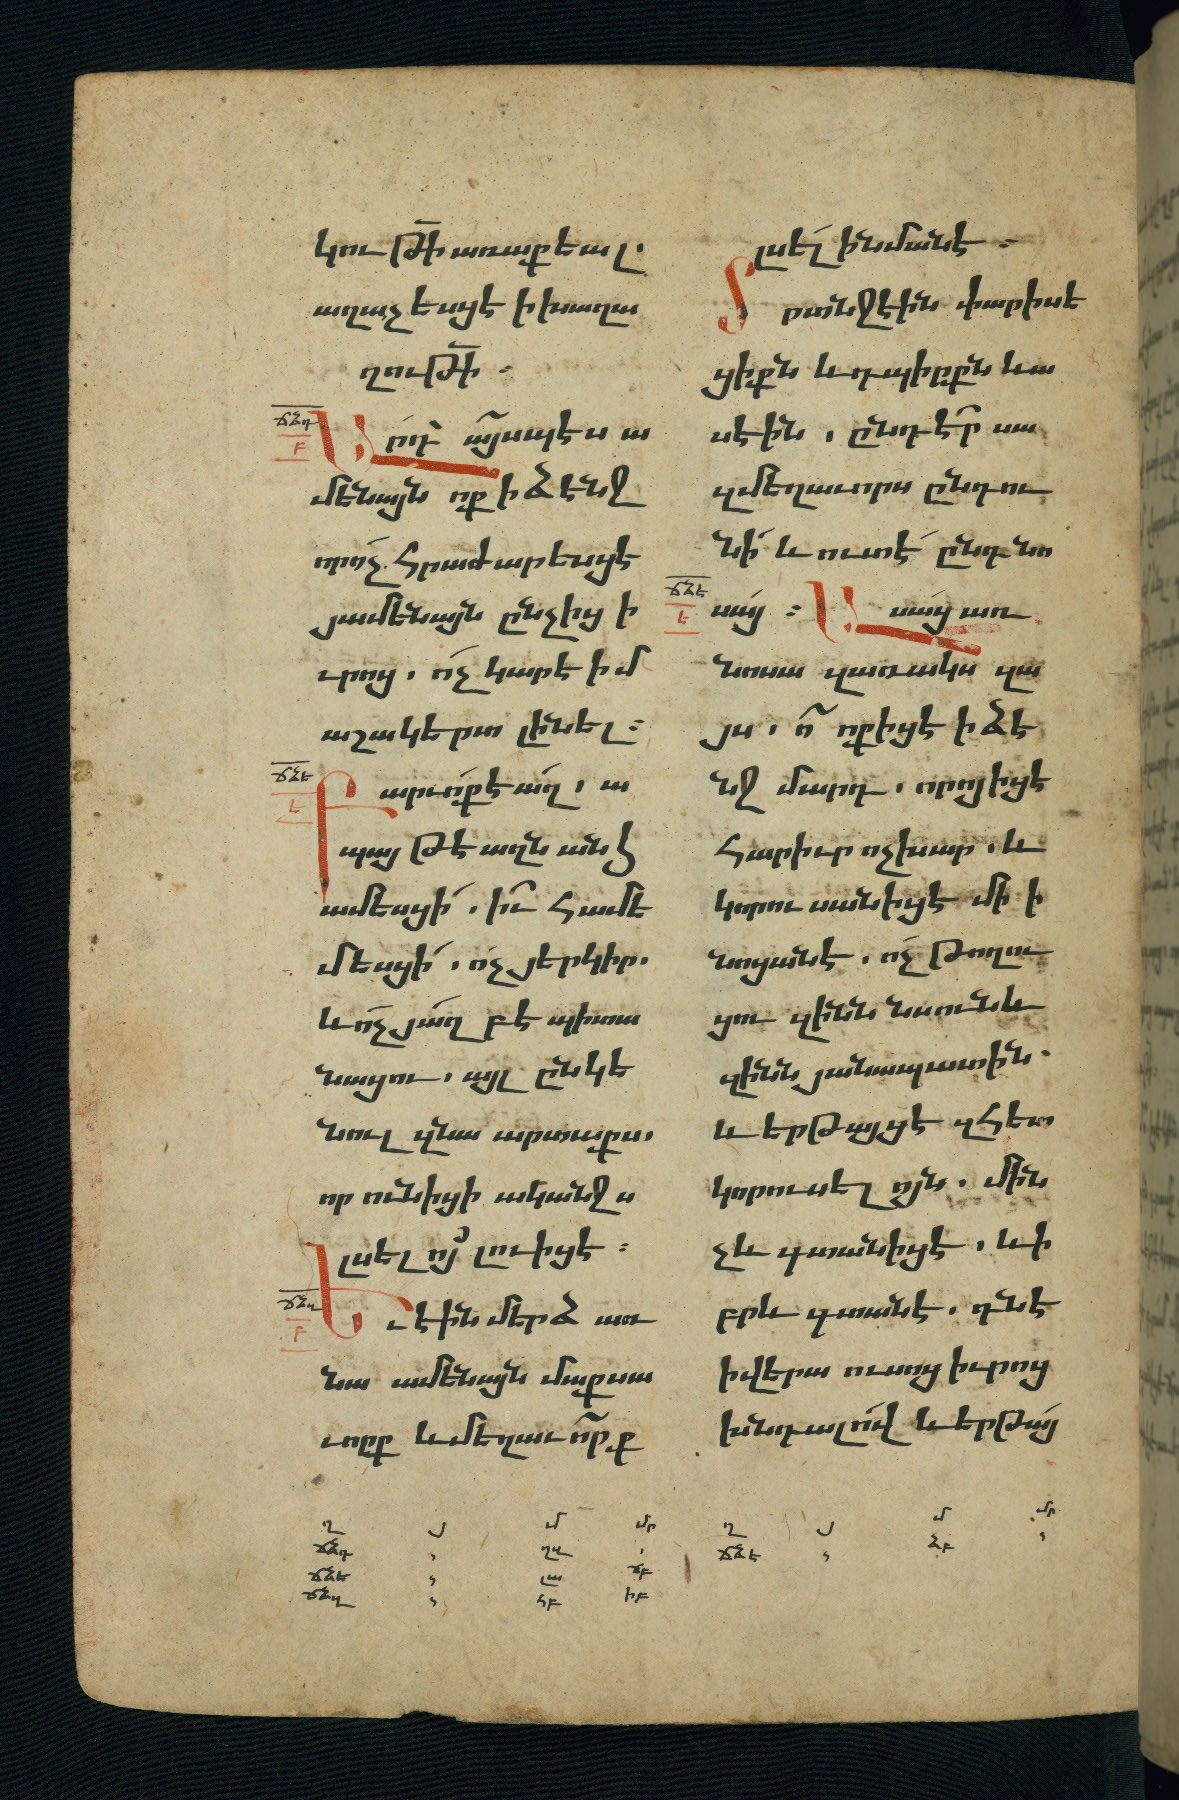 կու թի առաքեալ.
աղաչեսցէ ի խաղա
ղութի ։
ՃՁԴ
Բ
Արդ՝ այսպէս ա
մենայն ոք ի ձէնջ
որոչ հրաժարեսցէ
յամենայն ընչից ի
ւրոց. ոչ կարէ իմ
աշակերտ լինել։
ՃՁԵ
Բարւոք է աղ. ա
պայ թէ աղն անհ
ամեսցի. իւ համե
մեսցի. ոչ յերկիր.
և ոչ յաղբ է պիտա
նացու. այլ ընկե
նուլ զնա արտաքս.
որ ունիցի ականջս
լսել ոյ լուիցէ։
ՃՁԶ
Բ
Եւ էին մերձ առ
նա ամենայն մաքսա
ւորք և մեղաւորք
լսել ինմանէ։
Տրտնջէին փարիսե
ցիքն և դպիրքն և ա
սէին. ընդէր սա
զմեղաւորս ընդու
նի և ուտէ ընդ նո
ՃՁԷ
սայ։ Ասաց առ
նոսա զառակս զա
յս. ո՞ ոք իցէ ի ձէ
նջ մարդ. որոյ իցէ
հարիւր ոչխար. և
կորուսանիցէ մի ի
նոցանէ. ոչ թողու
ցու զիննսունև
զինն յանապատին.
և երթայցէ զհետ
կորուսելոյն. մին
չև գտանիցէ. և ի
բրև գտանէ. դնէ
ի վերա ուսոց իւրոց
խնդալով և երթայ